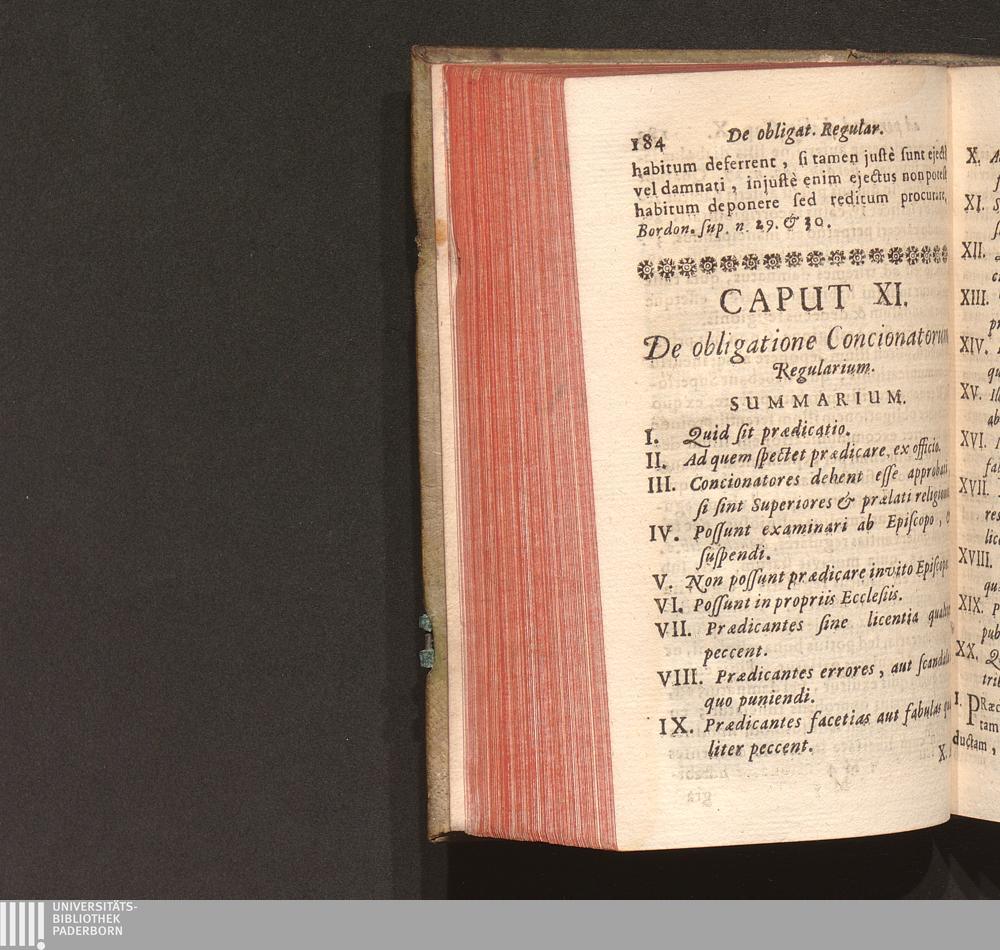 184 De obligat. Regular.
habitum deferrent, ſi tamen juſtè ſunt eject
vel damnati, injuſtè enim ejectus non poteſt
habitum deponere ſed reditum procurare,
Bordon. ſup. n. 29. & 30.
CAPUT XI.
De obligatione Concionatorum
Regularium.
SUMMARIUM.
I. Quid ſit prædicatio.
II. Ad quem ſpectet prædicare, ex officio.
III. Concionatores debent eſſe approbati,
ſi ſint Superiores & prælati religion
IV. Poſſunt examinari ab Epiſcopo,
ſuſpendi.
V. Non poſſunt prædicare invito Epiſcopo
VI. Poſſunt in propriis Eccleſiis.
VII. Prædicantes ſine licentia
peccent.
VIII. Prædicantes errores, aut ſcandala
quo puniendi.
IX. Prædicantes facetias aut fabulas qua
liter peccent.
X.
X.
XI.
XII.
XIII.
XIV.
XV.
XVI.
XVII.
XVIII.
XIX.
pub
XX.
I. PRæd
tam
ductam,
UNIVERSITÄTS-
BIBLIOTHEK
PADERBORN